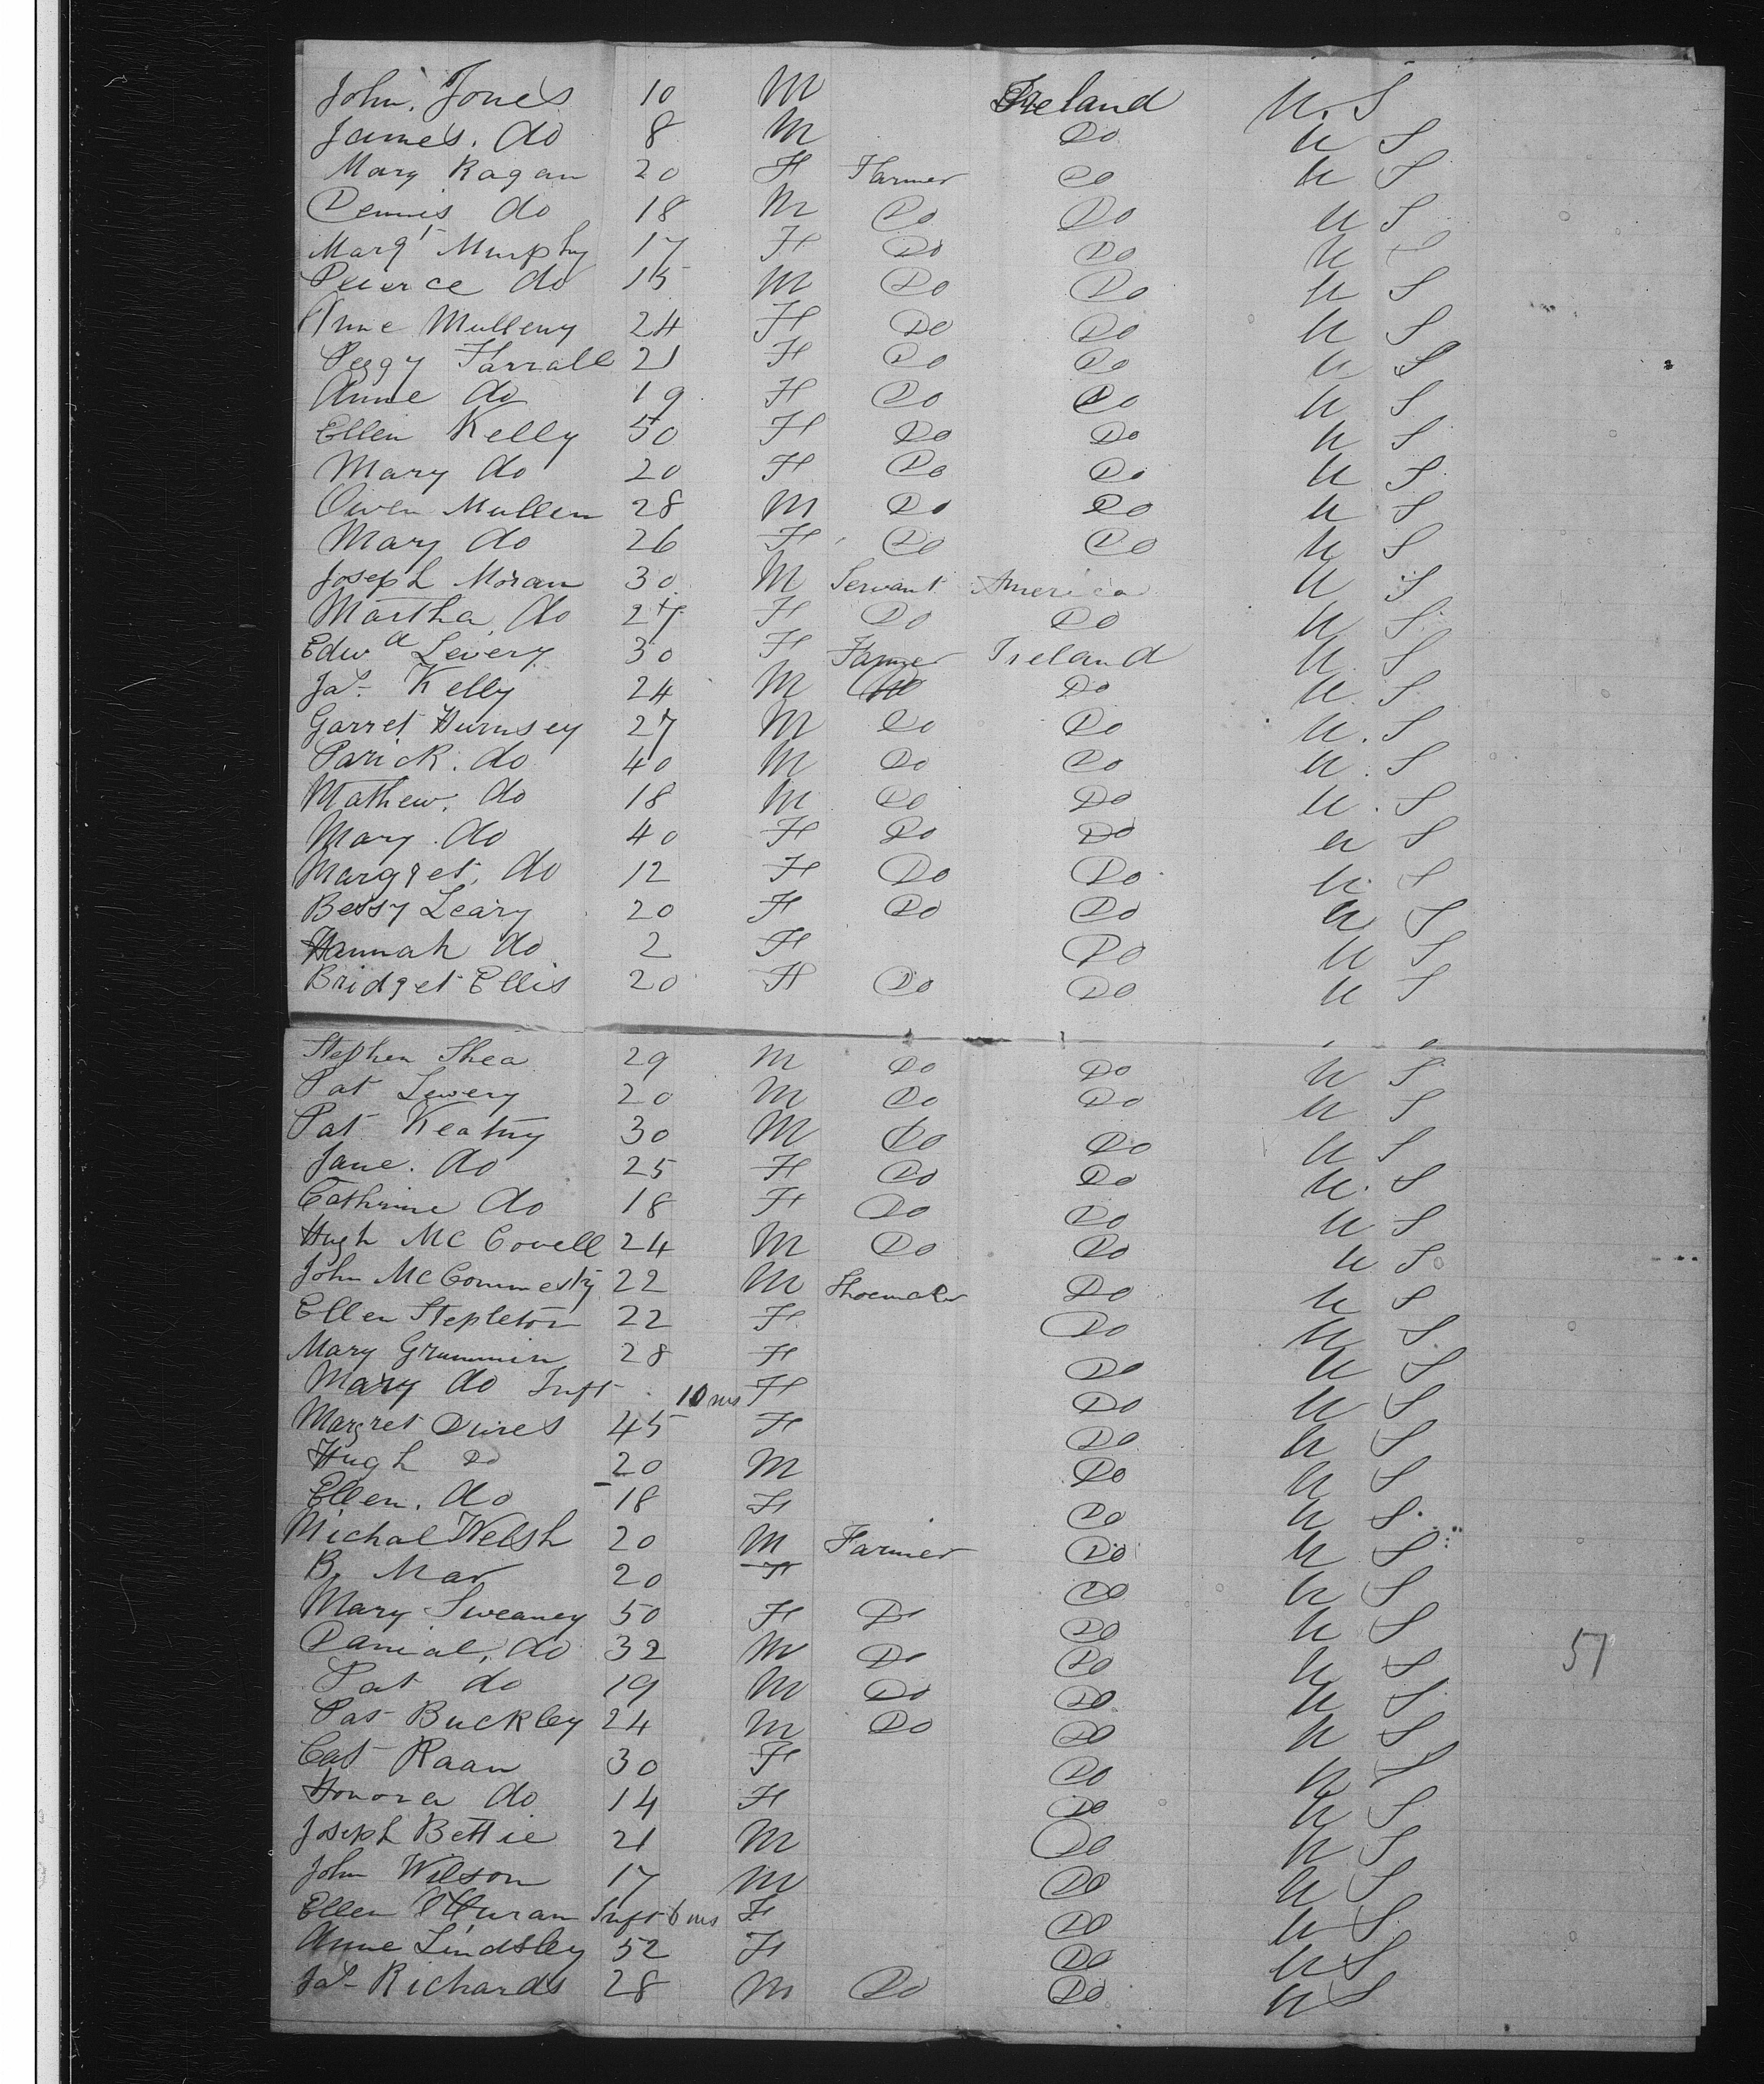 John. Jones 10 M Ireland U.S
James. do 8 M Do U S
Mary Ragan 20 F Farmer Do U S
Dennis do 18 M Do Do U S
Margt Murphy 17 F Do Do U S
Peirce do 15 M Do Do U S
Anne Mulleny 24 F Do Do U S
Peggy Farrall 21 F Do Do U S
Anne do 19 F Do Do U S
Ellen Kelly 50 F Do Do U S
Mary do 20 F Do Do U S
Owen Mullen 28 M Do Do U S
Mary do 26 F Do Do U S
Joseph Moran 30 M Servant America U S
Martha do 27 F Do Do U S
Edwd Levery 30 F Farmer Ireland U. S
Jas Kelly 24 M Do Do U. S
Garret Hurnsey 27 M Do Do U. S
Parick. do 40 M Do Do U. S
Mathew. do 18 M Do Do U. S
Mary. do 40 F Do Do U S
Margret. do 12 F Do Do U. S
Bessy Leary 20 F Do Do U. S
Hannah do 2 F Do U S
Bridget Ellis 20 F Do Do U S
Stephen Shea 29 M Do Do U S
Pat Lewery 20 M Do Do U S
Pat Keatny 30 M Do Do U S
Jane. do 25 F Do Do U. S
Cathrine do 18 F Do Do U S
Hugh Mc Covell 24 M Do Do U S
John McCommesty 22 M Shoemaker Do U S
Ellen Stepleton 22 F Do U S
Mary Grummin 28 F Do U S
Mary do Inft 10 ms F Do U S
Margret Dires 45 F Do U S
Hugh Do 20 M Do U S
Ellen. do 18 F Do U S
Michal Welsh 20 M Farmer Do U S
B. Mar 20 F Do U S
Mary Sweaney 50 F Do Do U S
Danial. do 32 M Do Do U S
Pat do 19 M Do Do U S
Pat Buckley 24 M Do Do U S
Cat Raan 30 F Do U S
Honora do 14 F Do U S
Joseph Bettie 21 M Do U S
John Wilson 17 M Do U S
Ellen Inft 6 ms F Do U S
Anne Lindsley 52 F Do U S
Jas Richards 28 M Do Do U S
51